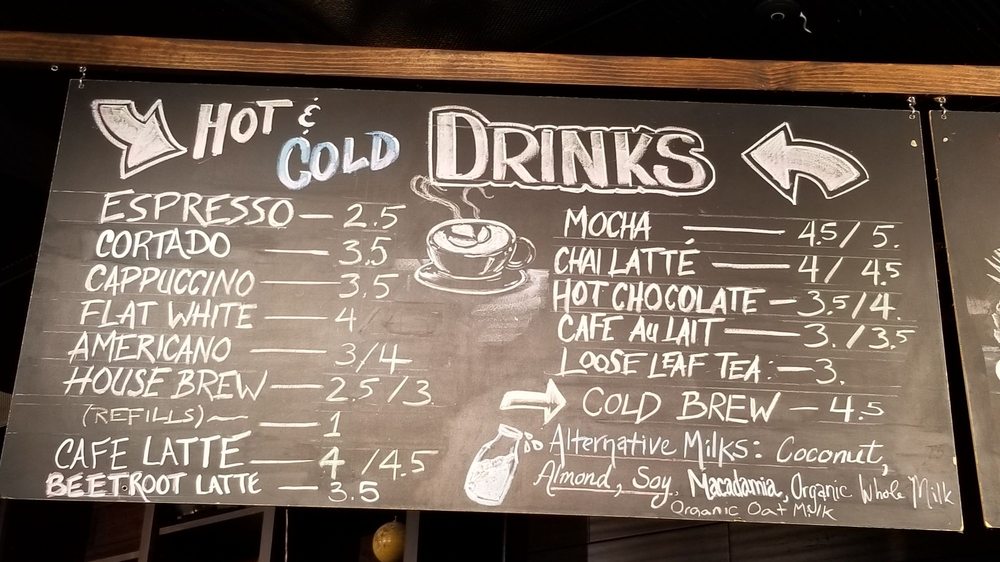 HOT & COLD DRINKS
ESPRESSO — 2.5
CORTADO — 3.5
CAPPUCCINO — 3.5
FLAT WHITE — 4
AMERICANO — 3/4
HOUSE BREW — 2.5/3.
(REFILLS) — 1
CAFE LATTE — 4/4.5
BEETROOT LATTE — 3.5
MOCHA — 4.5/5.
CHAI LATTÉ — 4/4.5
HOT CHOCOLATE — 3.5/4.
CAFE AU LAIT — 3./3.5
LOOSE LEAF TEA: — 3.
COLD BREW — 4.5
Alternative Milks: Coconut,
Almond, Soy, Macadamia, Organic Whole Milk
Organic Oat Milk